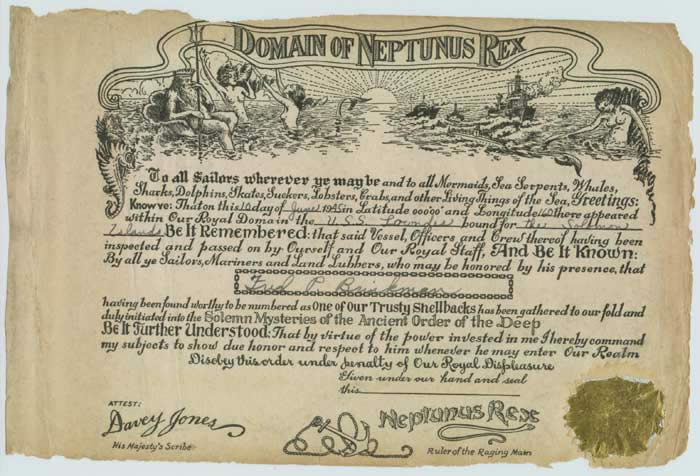 DOMAIN OF NEPTUNUS REX
To all Sailors wherever ye may be and to all Mermaids, Sea Serpents, Whales,
Sharks, Dolphins, Skates, Suckers, Lobsters, Crabs, and other Living Things of the Sea, Greetings:
Know ye: That on this 10 day of June 1945 in Latitude 000°00' and Longitude 160 there appeared
within Our Royal Domain the U.S.S. Lowndes bound for the Solomon
Islands Be It Remembered: that said Vessel, Officers and Crew thereof having been
inspected and passed on by Ourself and Our Royal Staff, And Be It Known:
By all ye Sailors, Mariners and Land Lubbers, who may be honored by his presence, that
Fred P. Brinkman
having been found worthy to be numbered as One of Our Trusty Shellbacks has been gathered to our fold and
duly initiated into the Solemn Mysteries of the Ancient Order of the Deep
Be It Further Understood: That by virtue of the power invested in me I hereby command
my subjects to show due honor and respect to him whenever he may enter Our Realm
Disobey this order under penalty of Our Royal Displeasure
Given under our hand and seal
this
ATTEST:
Davey Jones
His Majesty's Scribe
Neptunus Rex
Ruler of the Raging Main